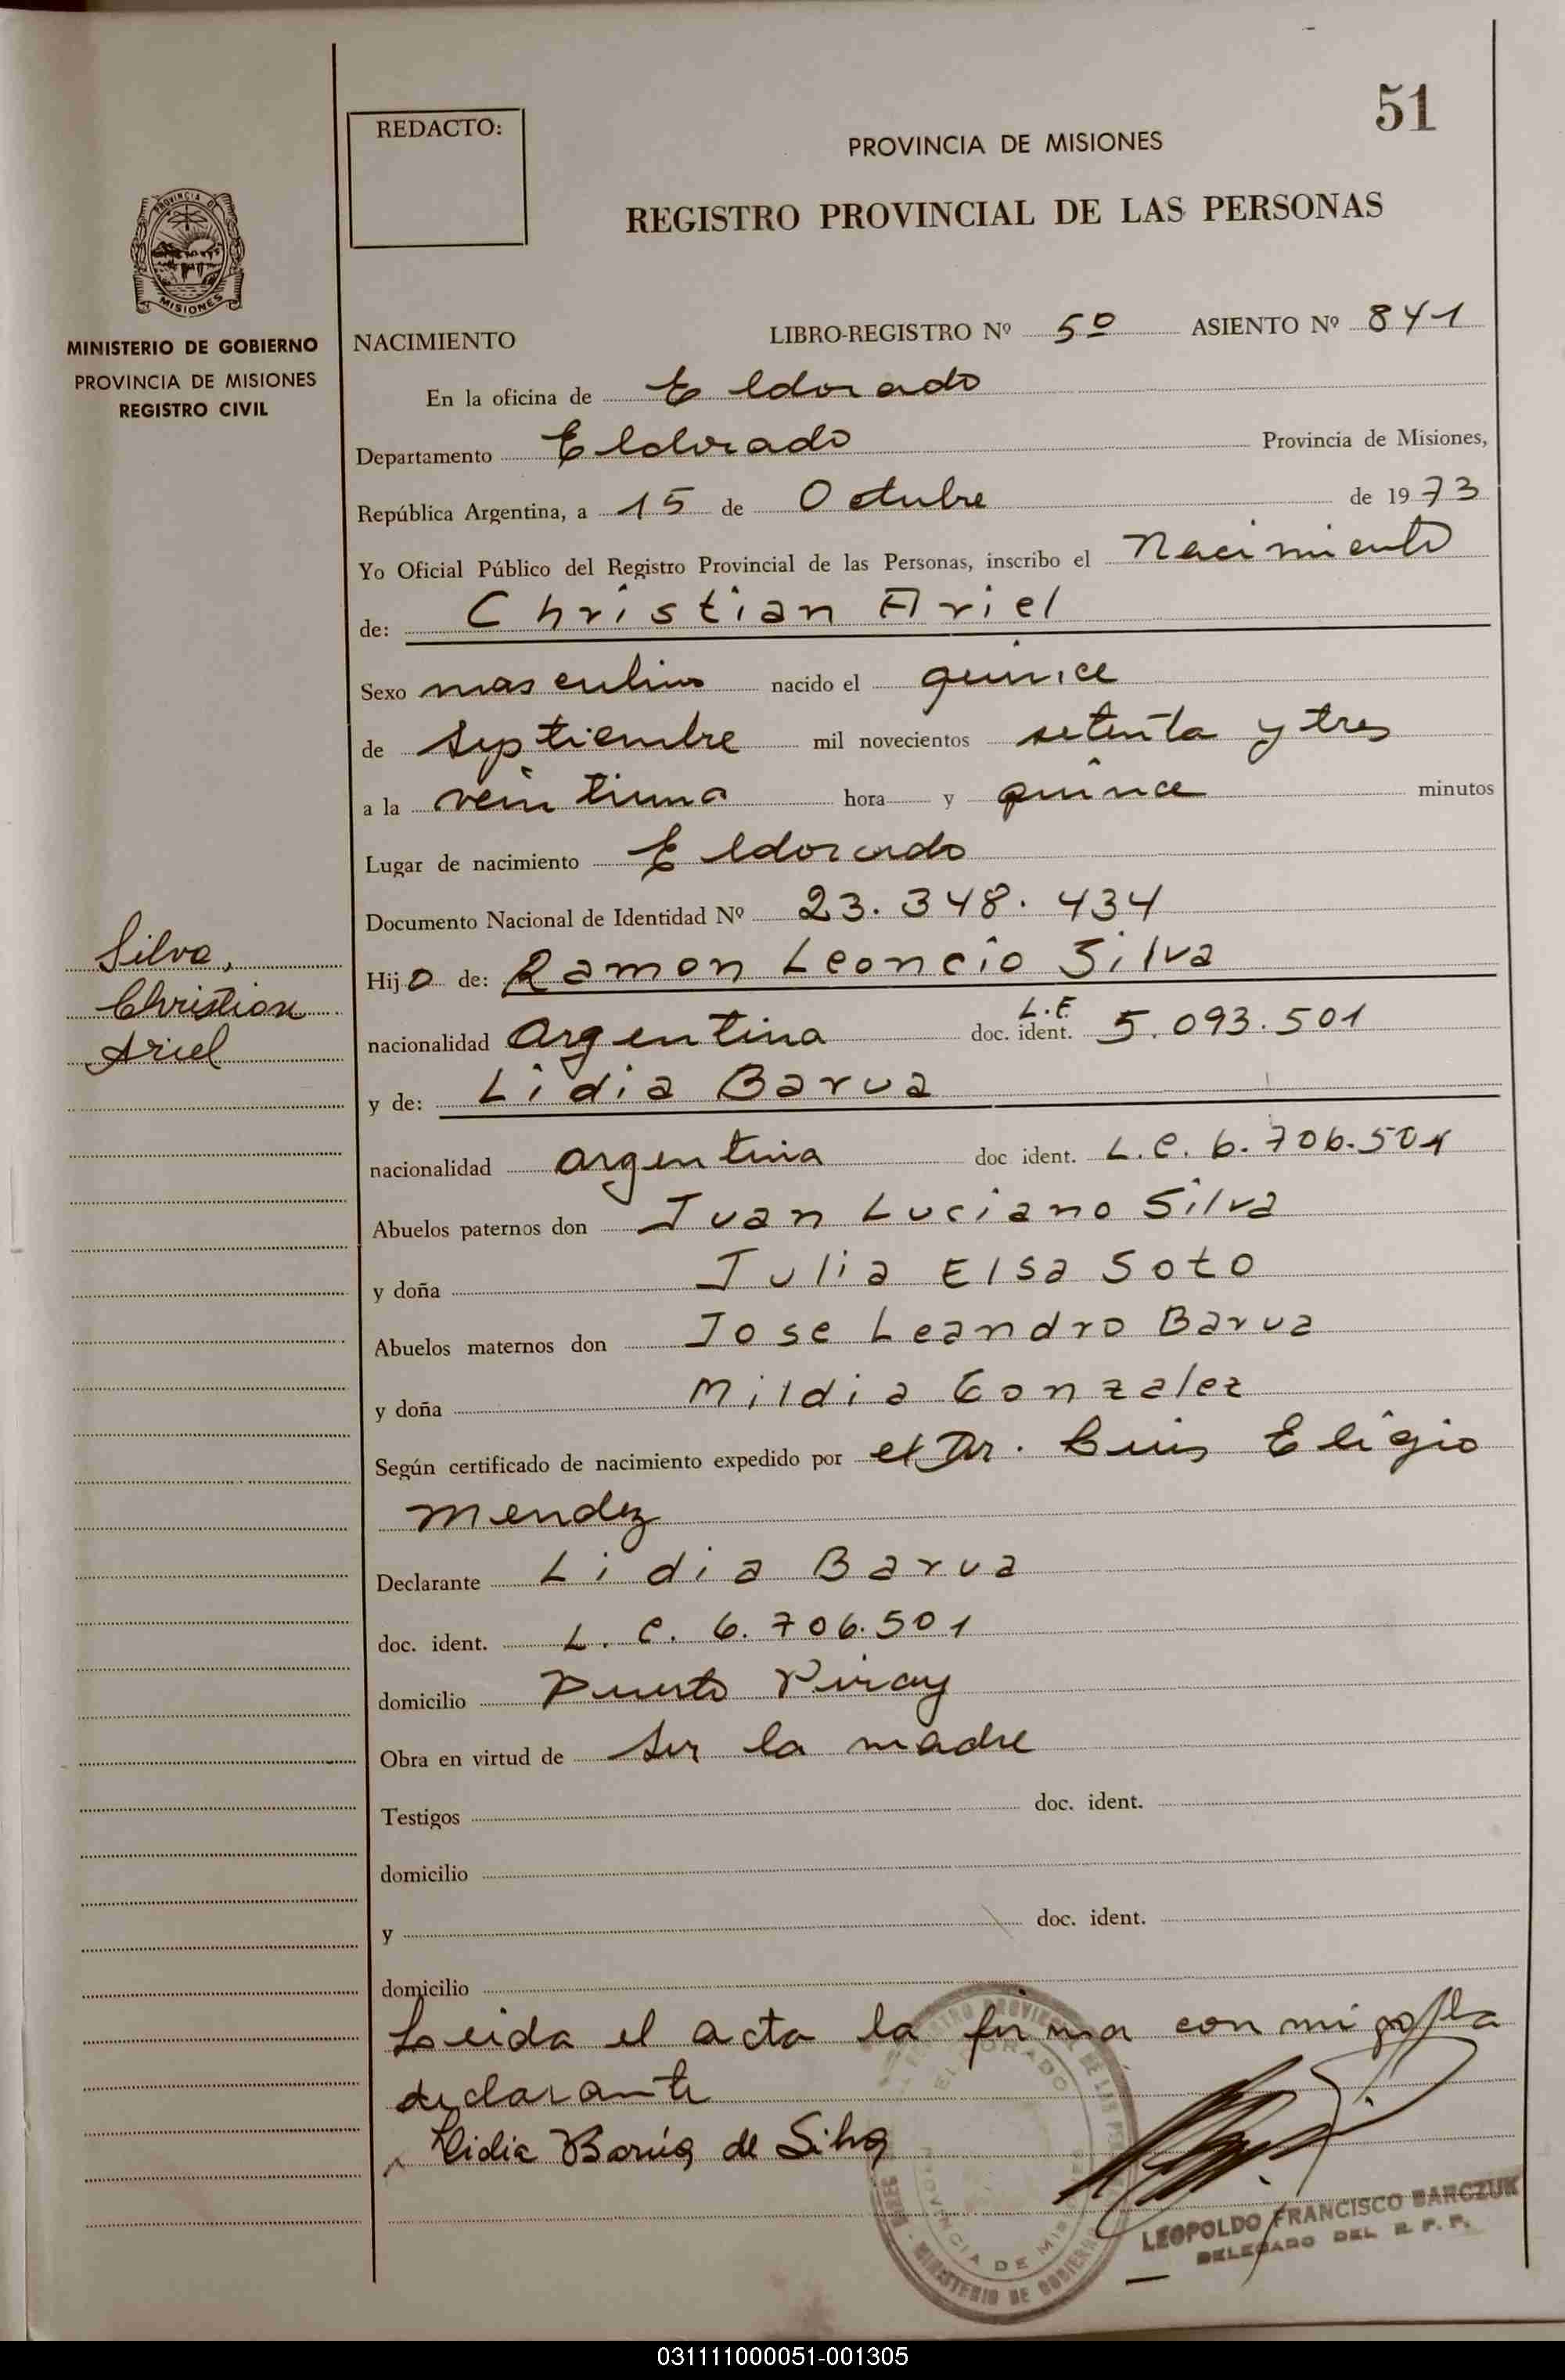 51
REDACTO:
PROVINCIA DE MISIONES
REGISTRO PROVINCIAL DE LAS PERSONAS
PROVINCIA DE
MISIONES
MINISTERIO DE GOBIERNO
PROVINCIA DE MISIONES
REGISTRO CIVIL
NACIMIENTO LIBRO-REGISTRO Nº 5º ASIENTO Nº 841
En la oficina de Eldorado
Departamento Eldorado Provincia de Misiones,
República Argentina, a 15 de Octubre de 1973
Yo Oficial Público del Registro Provincial de las Personas, inscribo el Nacimiento
de: Christian Ariel
Sexo masculino nacido el quince
de septiembre mil novecientos setenta y tres
a la veintiuna hora y quince minutos
Lugar de nacimiento Eldorado
Documento Nacional de Identidad Nº 23.348.434
Silva,
Christian
Ariel
Hijo de: Ramon Leoncio Silva
nacionalidad argentina doc. ident. L.E. 5.093.501
y de: Lidia Barua
nacionalidad argentina doc ident. L.C. 6.706.501
Abuelos paternos don Juan Luciano Silva
y doña Julia Elsa Soto
Abuelos maternos don Jose Leandro Barua
y doña Mildia Gonzalez
Según certificado de nacimiento expedido por el Dr. Luis Eligio
Mendez
Declarante Lidia Barua
doc. ident. L.C. 6.706.501
domicilio Puerto Piray
Obra en virtud de ser la madre
Testigos doc. ident.
domicilio
y doc. ident.
domicilio
Leida el acta la firma conmigo la
declarante
Lidia Barúa de Silva
ELDORADO
PROVINCIA DE MISIONES
MINISTERIO DE GOBIERNO
LEOPOLDO FRANCISCO BARCZUK
DELEGADO DEL R. P. P.
031111000051-001305